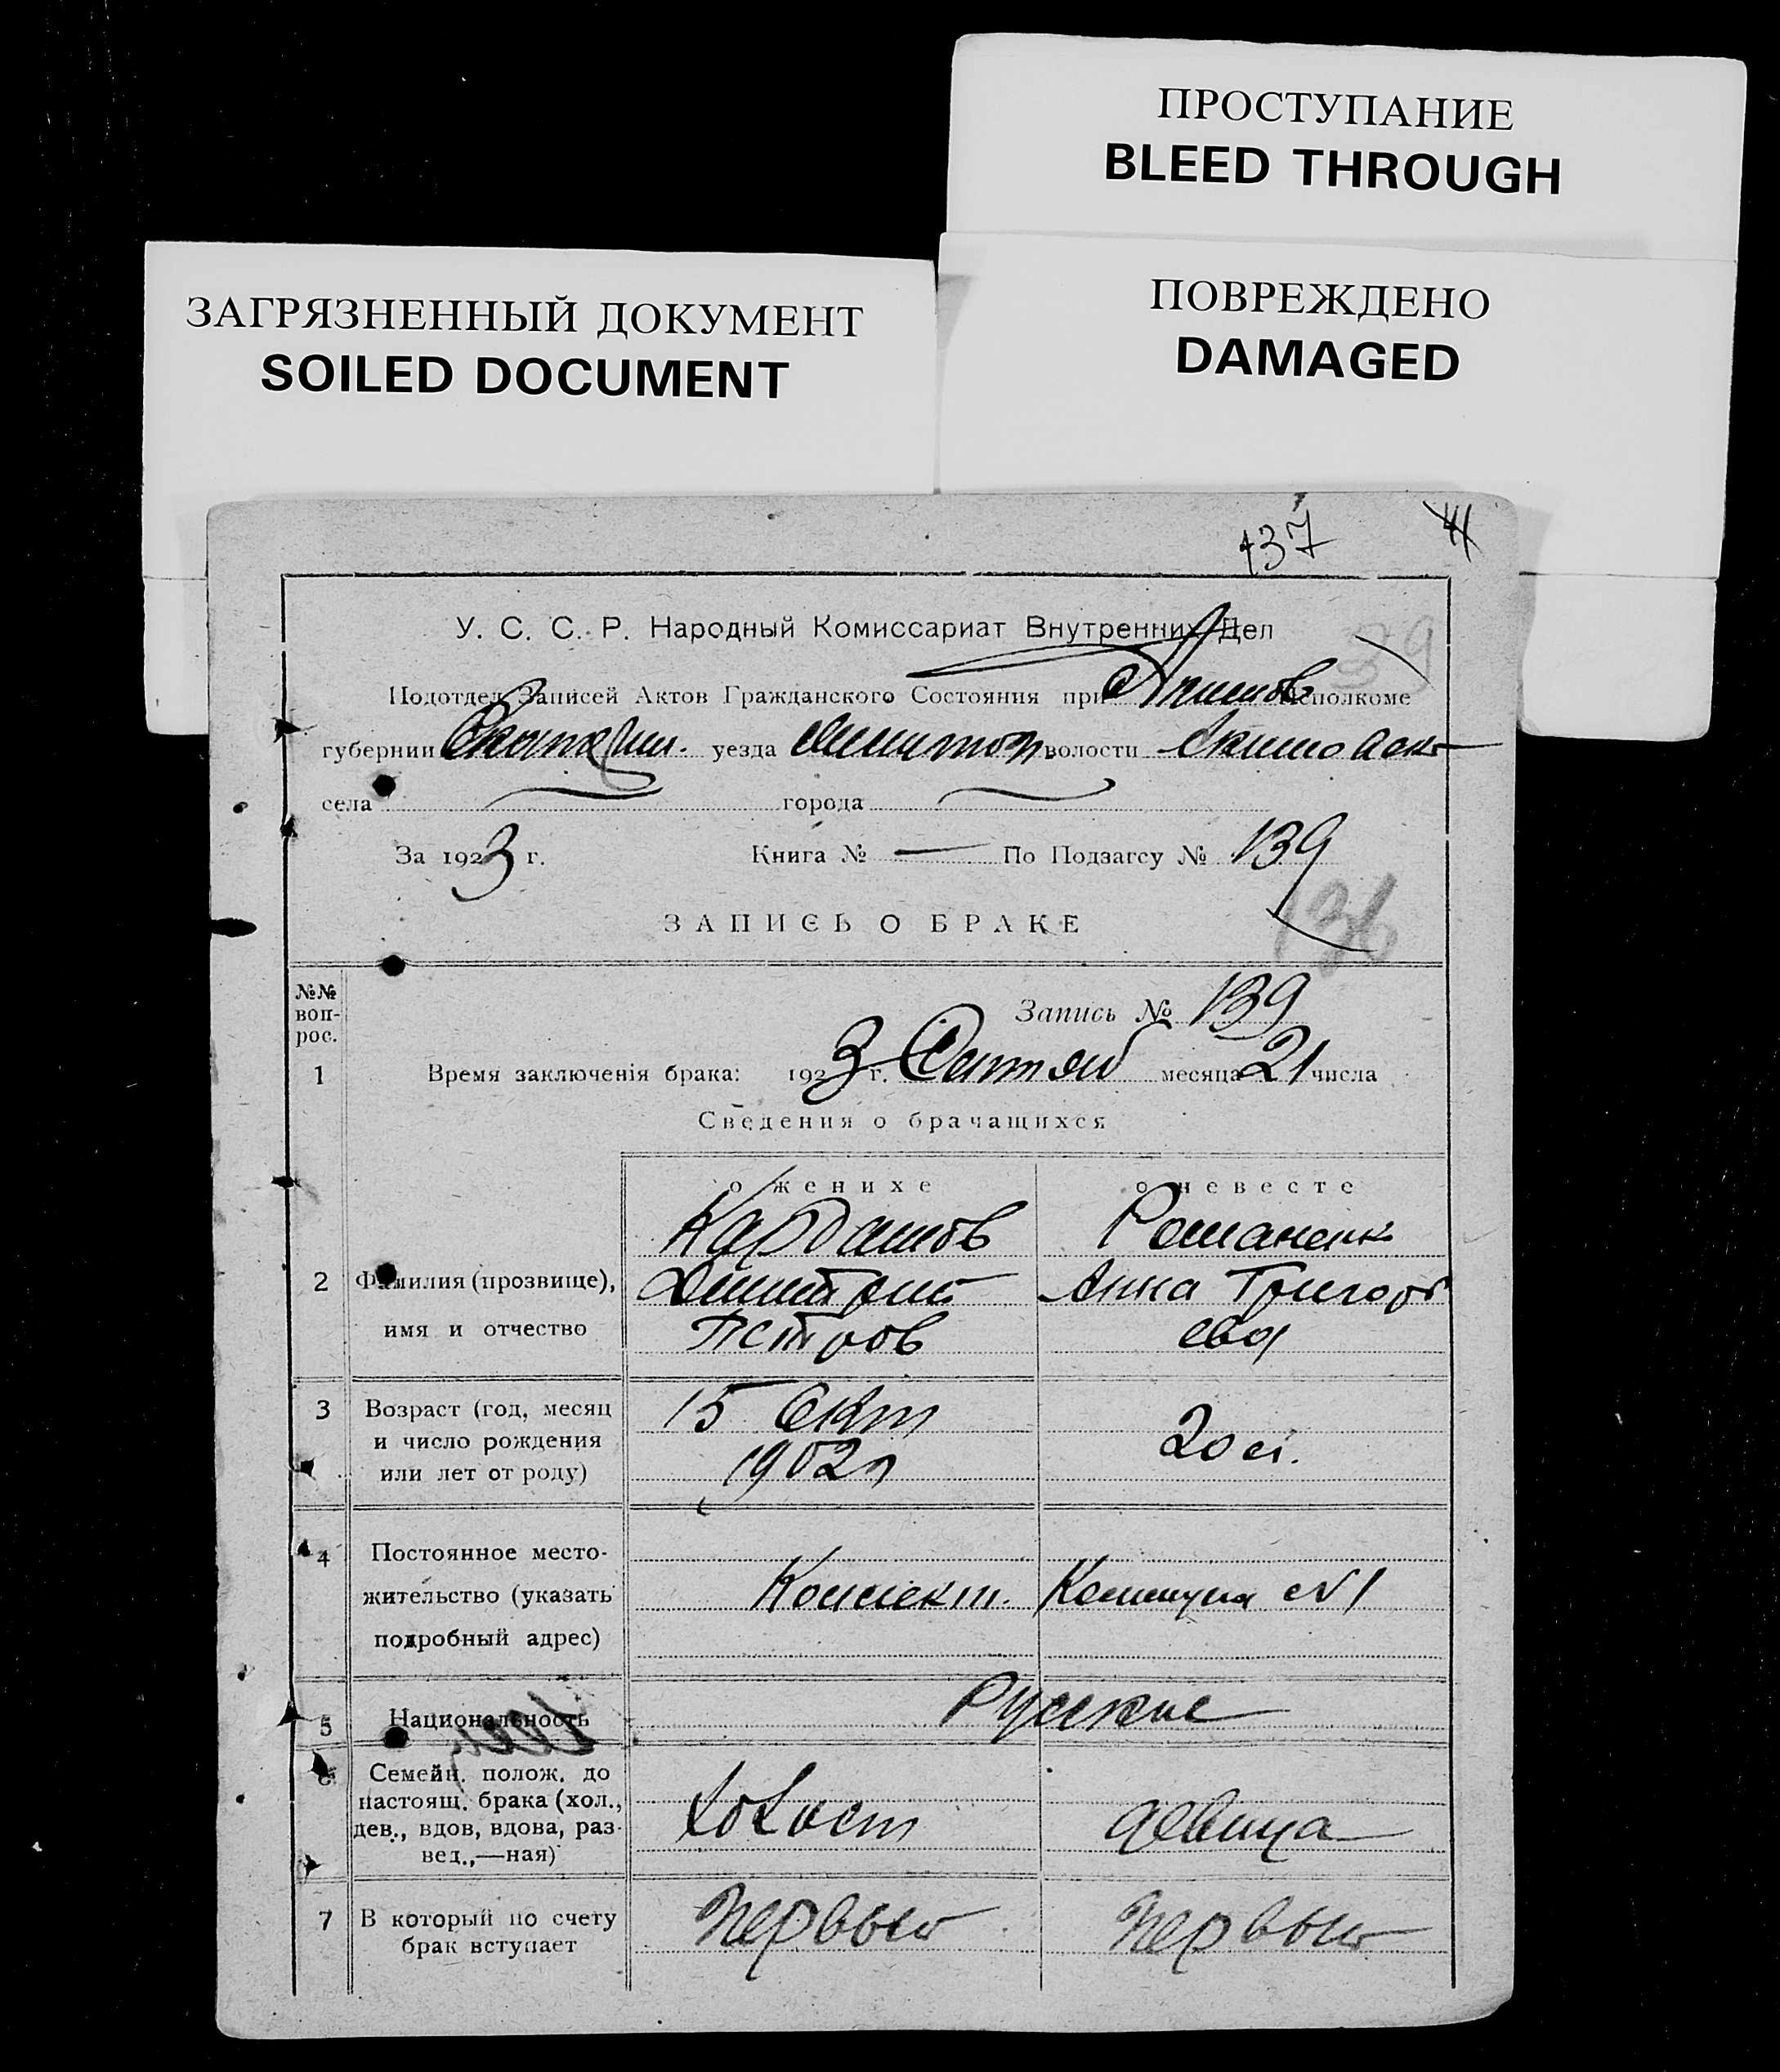 ПРОСТУПАНИЕ
BLEED THROUGH
ЗАГРЯЗНЕННЫЙ ДОКУМЕНТ
SOILED DOCUMENT
ПОВРЕЖДЕНО
DAMAGED
137
У. С. С. Р. Народный Комиссариат Внутренних Дел
39
Подотдел Записей Актов Гражданского Состояния при Акимов Исполкоме
губернии уезда волости Акимовск
села города
За 1923 г. Книга № — По Подзагсу № 139
136
ЗАПИСЬ О БРАКЕ
№№ воп-рос.
Запись № 139
1 Время заключенія брака: 1923 г. месяца 21 числа
Сведения о брачащихся
о женихе о невесте
Кардашов Романенк
2 Фамилия (прозвище), Дмитрий Анна Григорь
имя и отчество Петров евa
3 Возраст (год, месяц 15 Окт
и число рождения 1902 г 20 л.
или лет от роду)
4 Постоянное место-
жительство (указать Коллект. Коммуна №1
подробный адрес)
5 Национальность Русские
6 Семейн. полож. до
настоящ. брака (хол., Холост девица
дев., вдов, вдова, раз-
вед.,—ная)
7 В который по счету Первый Первый
брак вступает